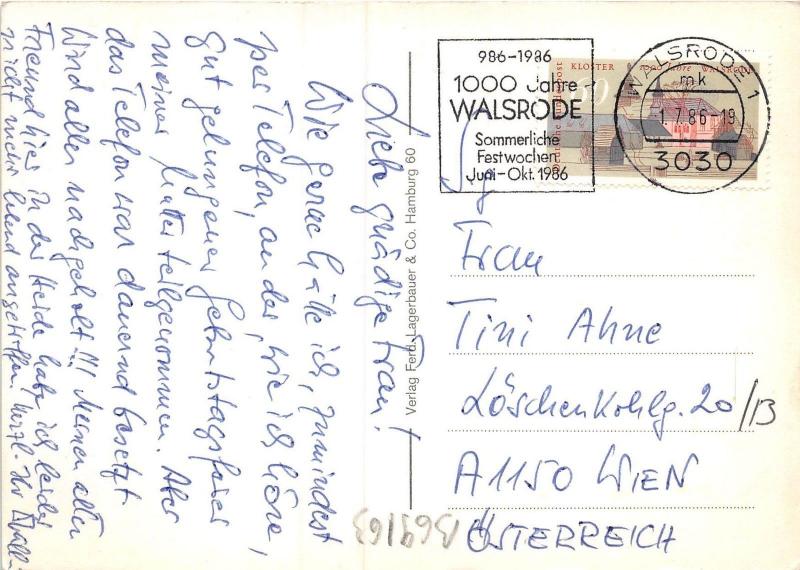 Liebe gnädige Frau!
Wie gerne hätte ich, zumindest
per Telefon, an der, wie ich höre,
gut gelungenen Geburtstagsfeier
meiner Mutter teilgenommen. Aber
das Telefon war dauernd besetzt
Wird alles nachgeholt!!! Meinen alten
Freund hier in der Heide habe ich leider
nicht mehr lebend angetroffen. Herzl. Ihr
Verlag Ferd. Lagerbauer & Co. Hamburg 60
986-1986
1000 Jahre
WALSRODE
Sommerliche
Festwochen
Juni-Okt. 1986
Deutsche Bundespost
KLOSTER 1000 JAHRE WALSRODE
60
WALSRODE 1
mk
1.7.86-19
3030
Frau
Tini Ahne
Löschenkohlg. 20/13
A1150 WIEN
ÖSTERREICH
1369/63